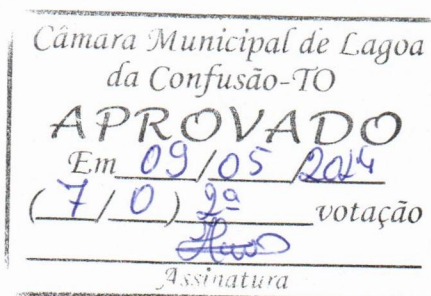 Câmara Municipal de Lagoa
da Confusão-TO
APROVADO
Em 09/05/2024
(7/0) 2ª votação
Assinatura